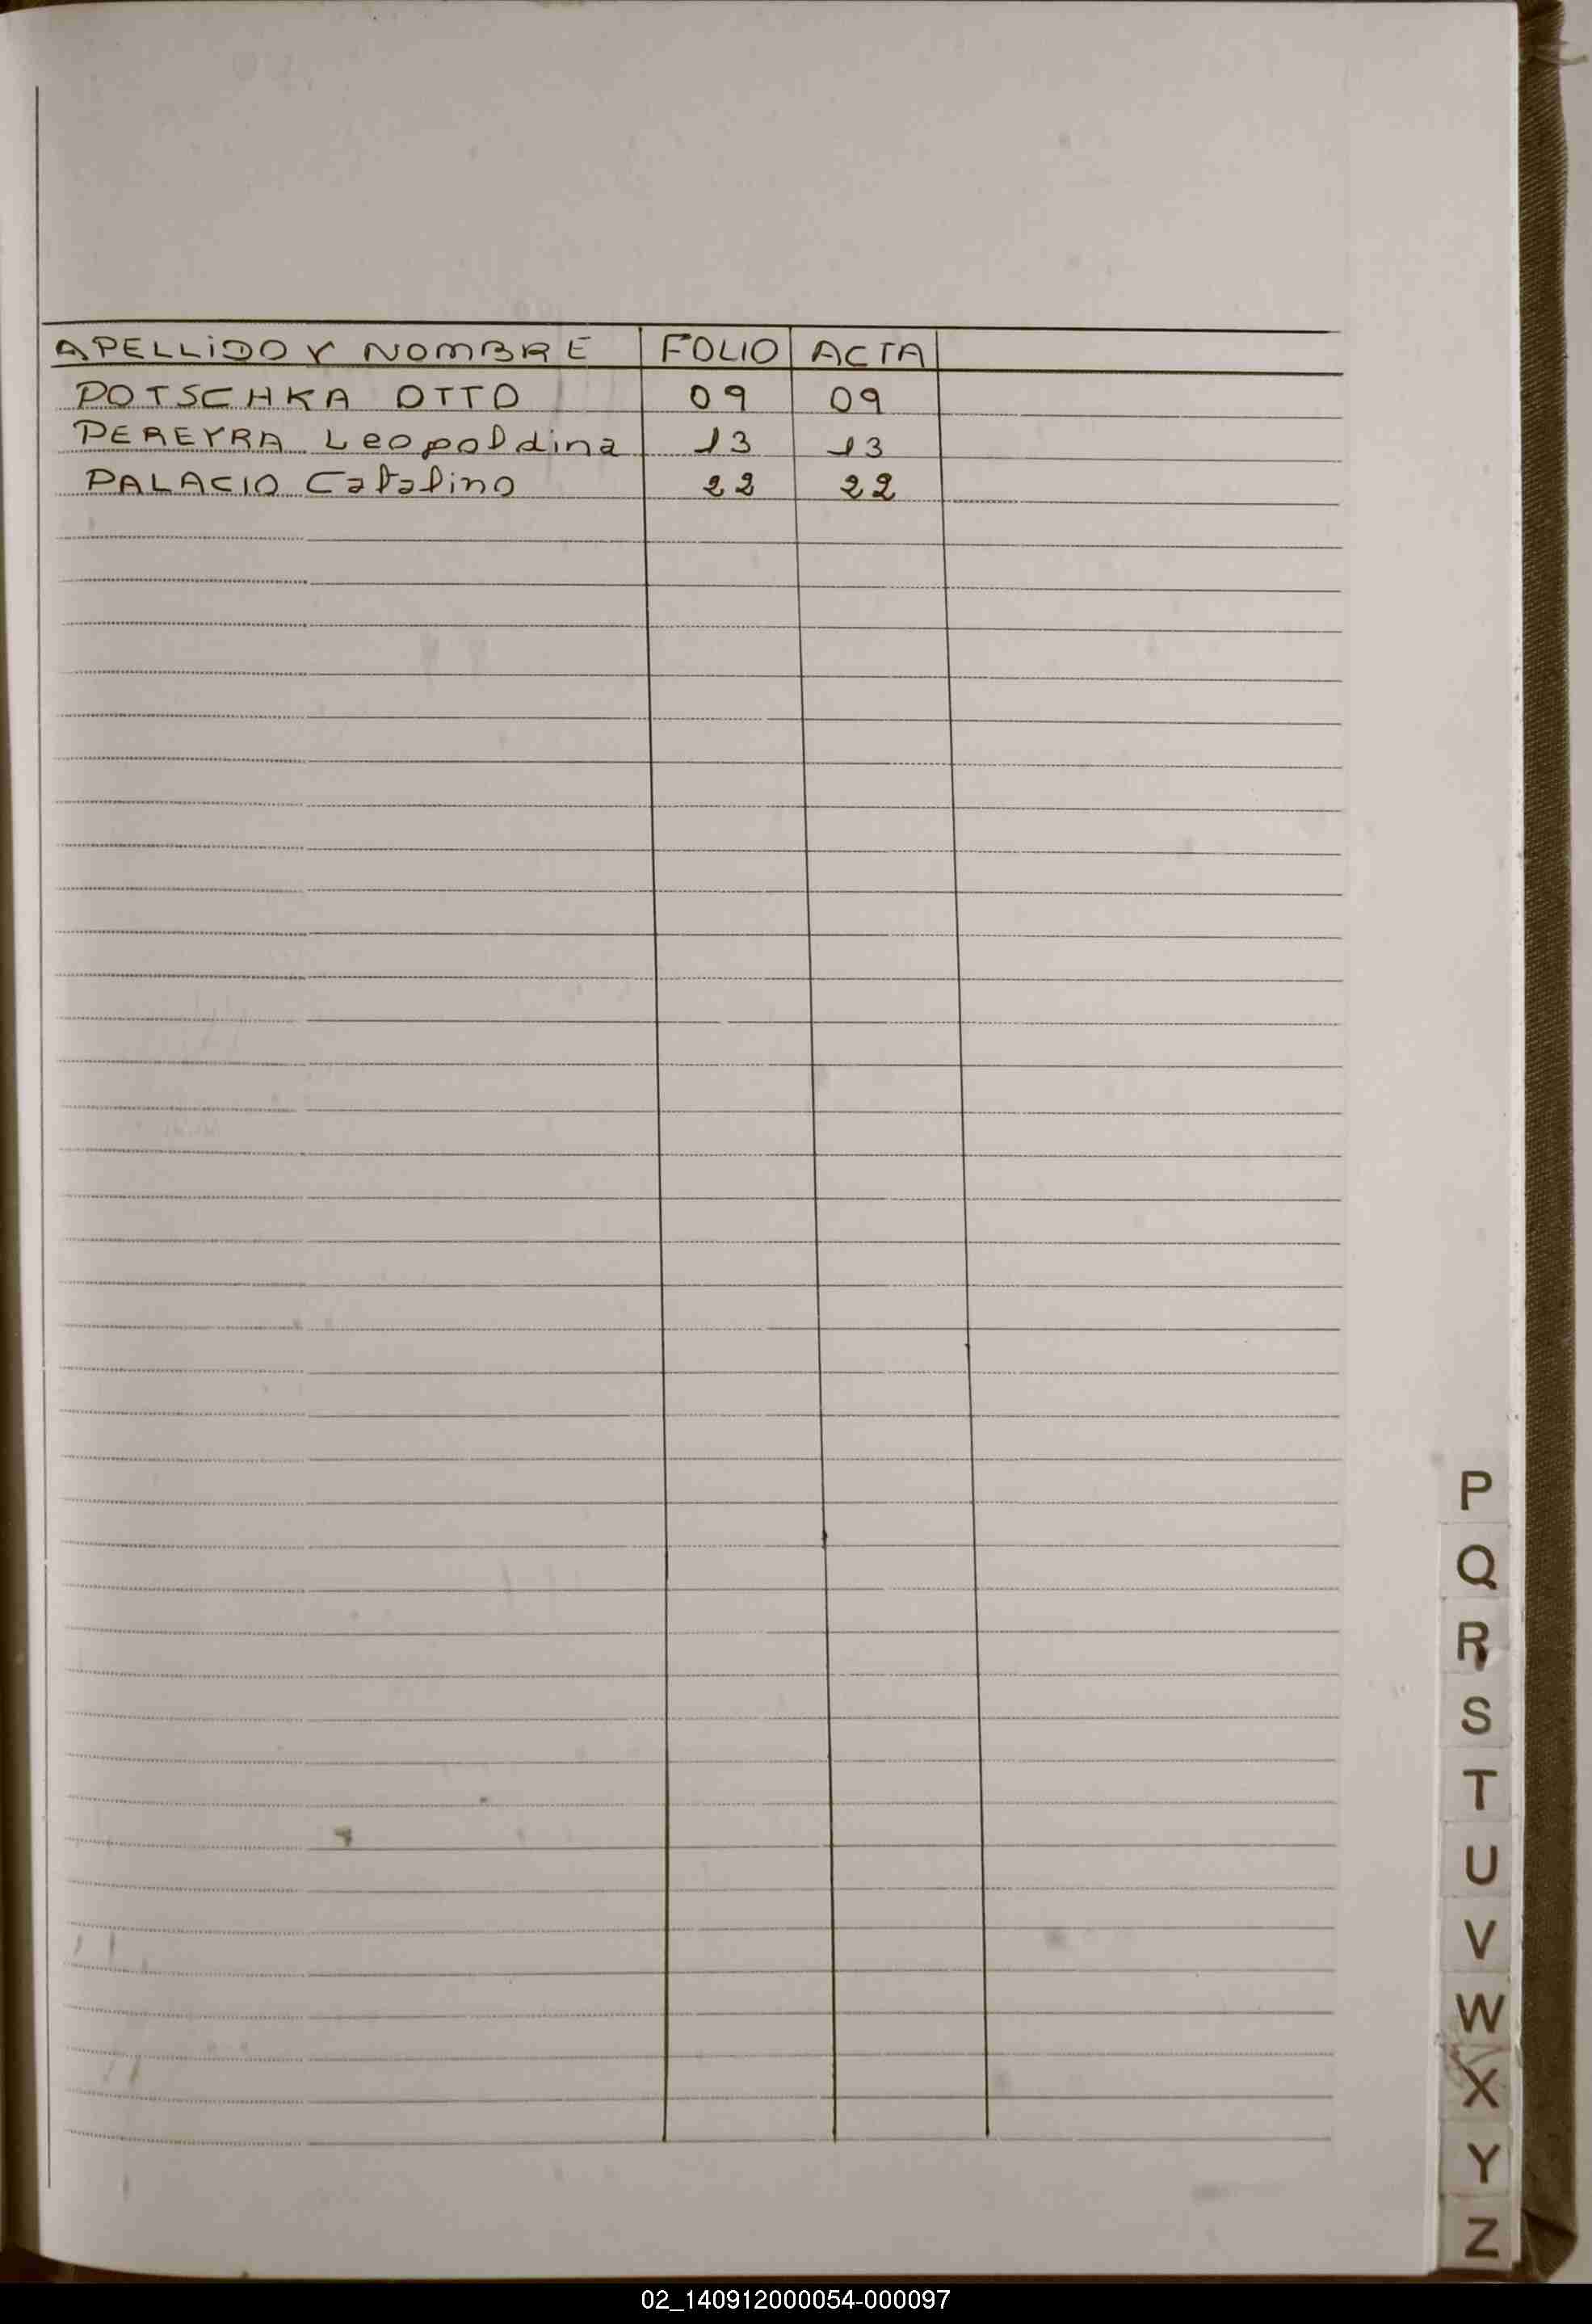 APELLiDO Y NOMBRE FOLIO ACTA
POTSCHKA OTTO 09 09
PEREYRA Leopoldina 13 13
PALACIO Catalino 22 22
P
Q
R
S
T
U
V
W
X
Y
Z
02_140912000054-000097